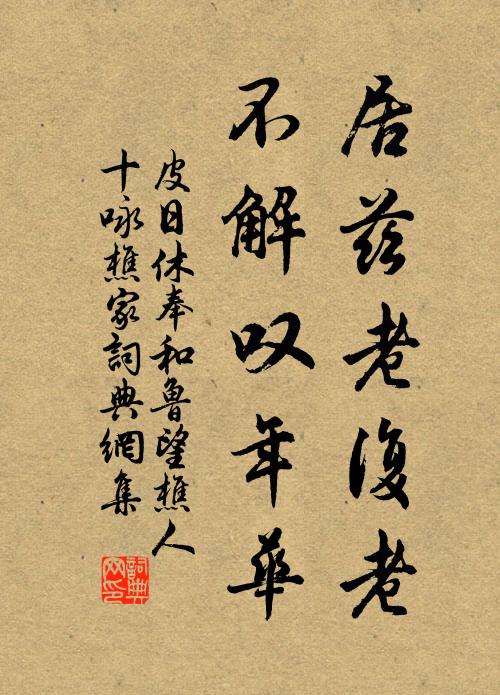 居茲老復老
不解叹年華
皮日休奉和魯望樵人
十咏樵家詞典網集
詞典
网印